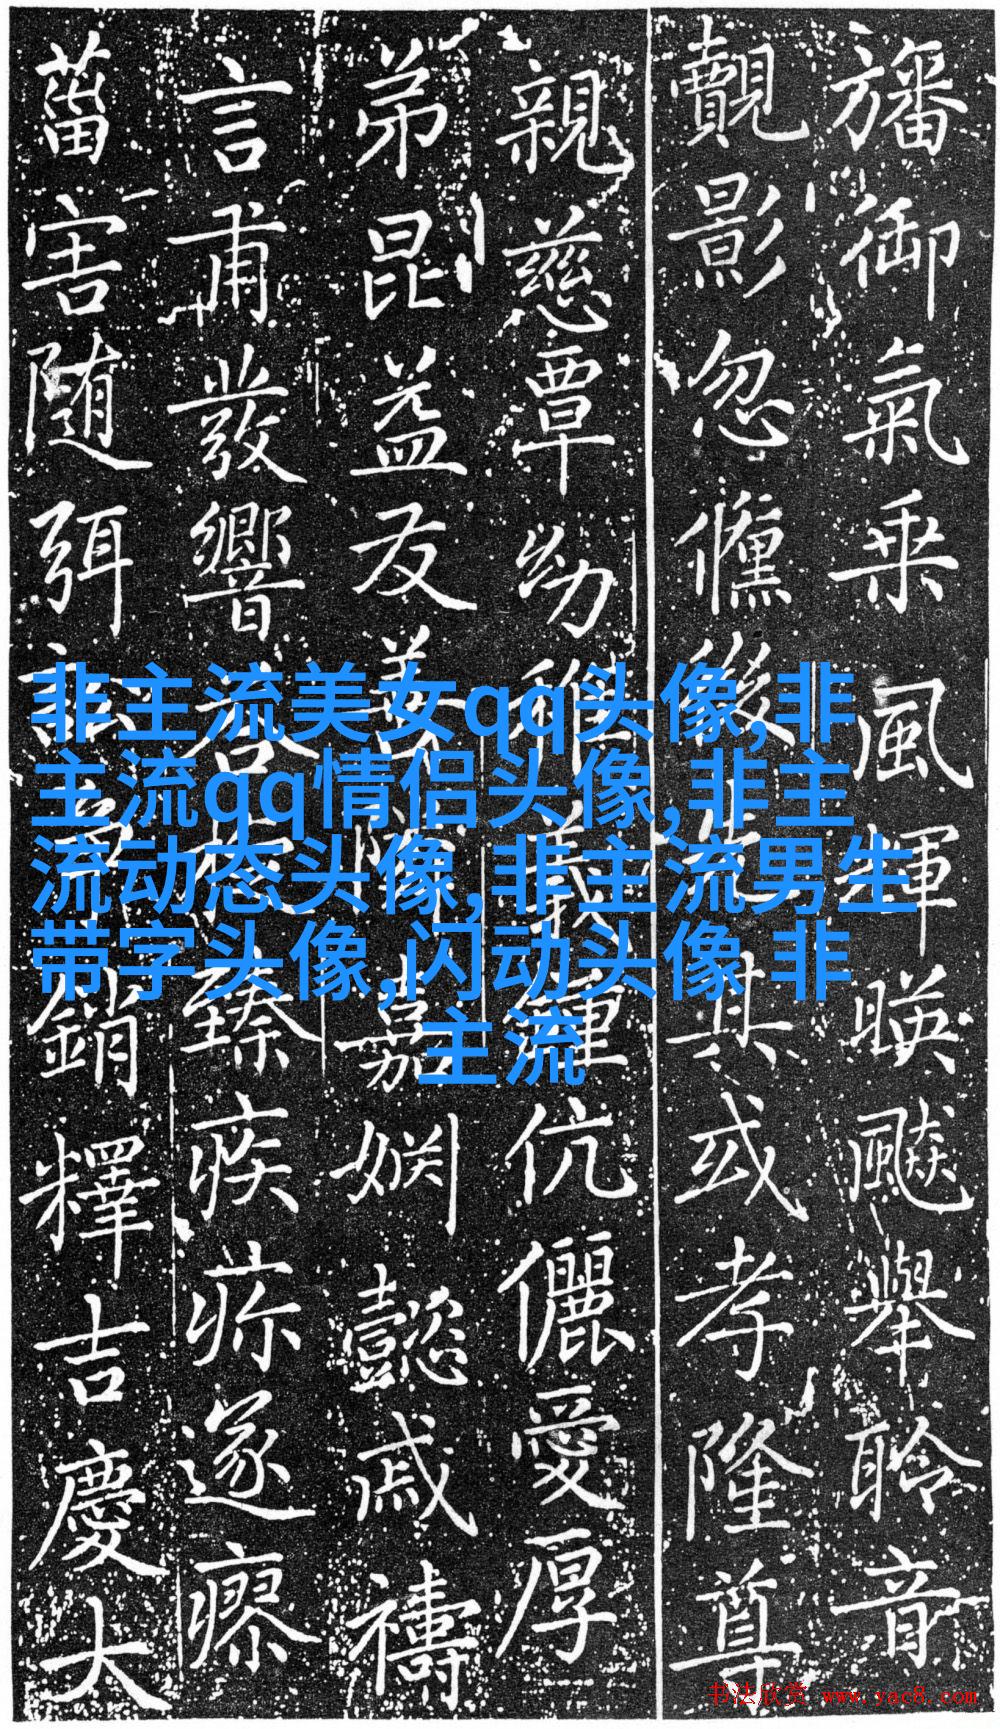 旛御氣乗風輝暎飈舉聆音
覿影忽儵後其或孝隆尊
親慈覃幼稚義鍾伉儷愛厚
弟昆益友義嘉姻懿戚禱
言甫發響臻疾疢遂瘳
菑害随弭銷釋吉慶大
非主流美女qq头像,非
主流qq情侣头像,非主
流动态头像,非主流男生
带字头像,闪动头像 非
主流
书法欣赏 www.yac8.com